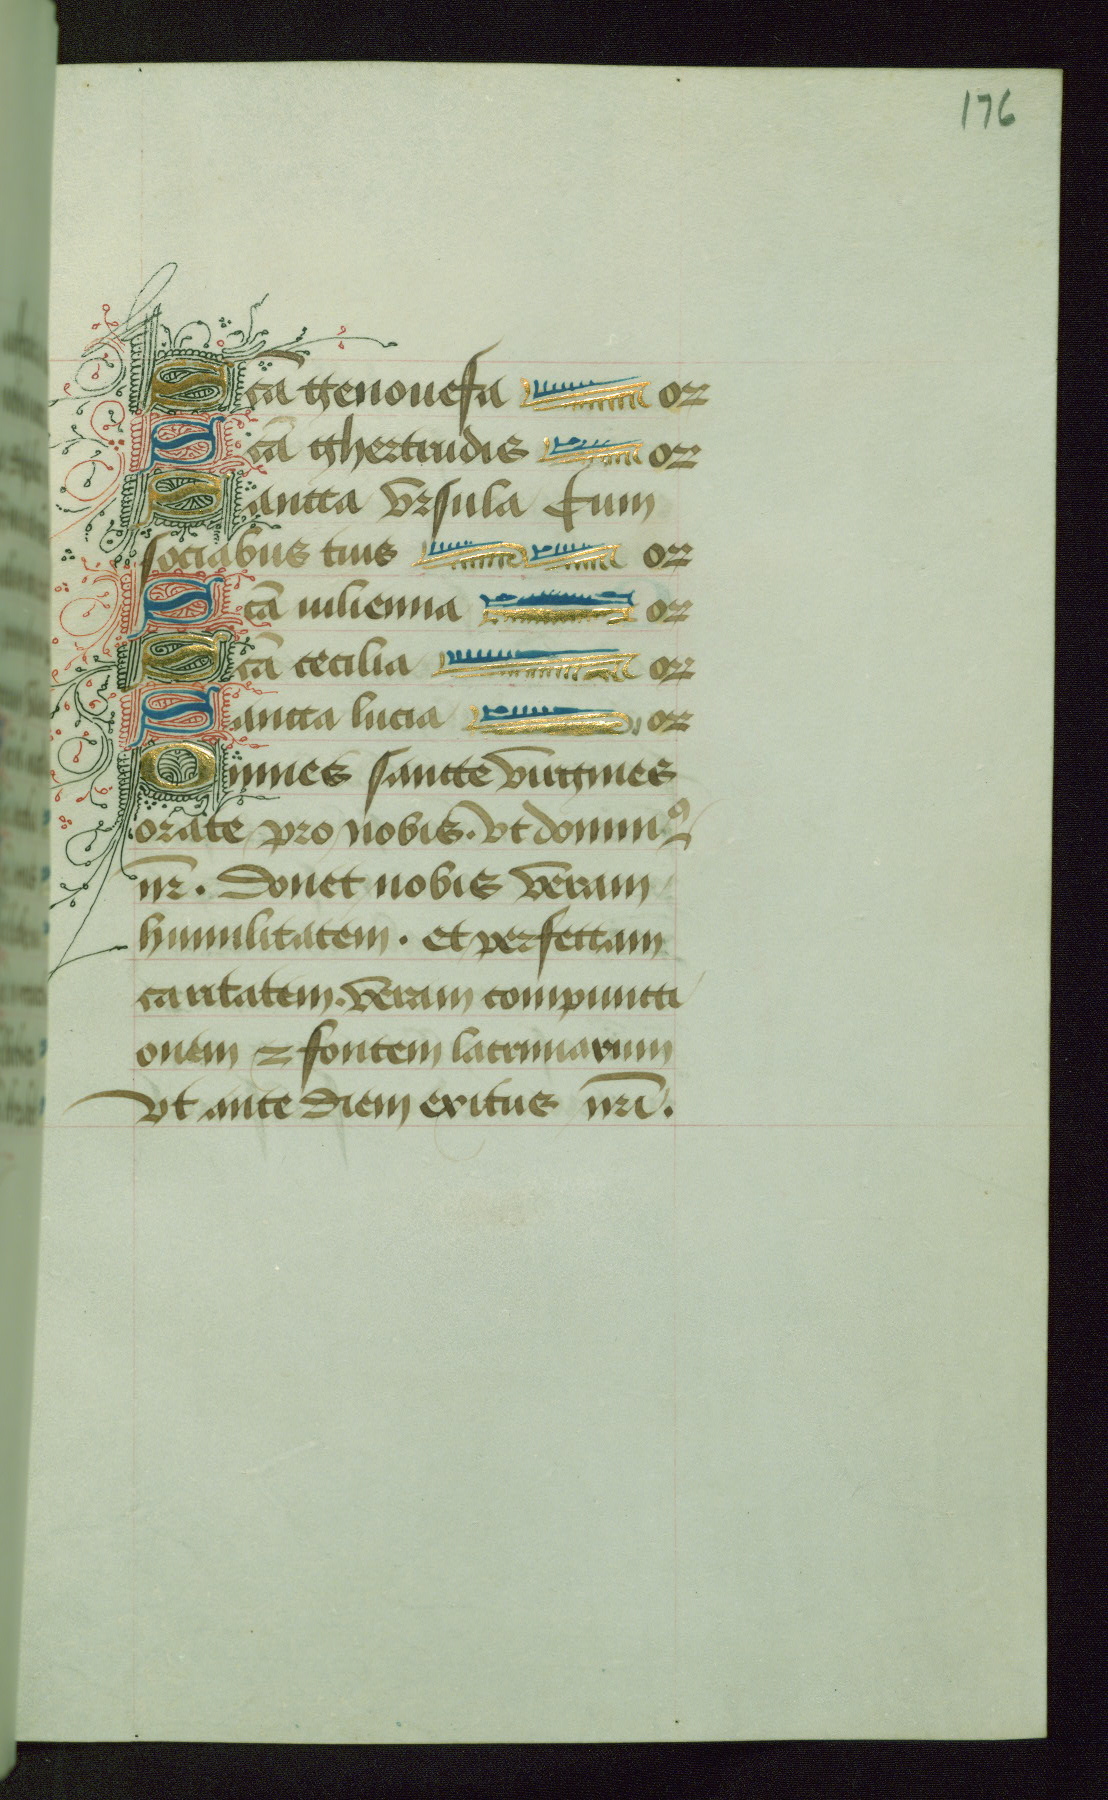 176
Scã genouefa or
Scã ghertrudis or
Sancta vrsula Cum
sociabus tuis or
Scã iulienna or
Scã cecilia or
Sancta lucia or
Omnes sancte virgines
orate pro nobis. vt dominꝯ
nr̄. Donet nobis veram
humilitatem. et perfectam
caritatem. veram compuncti
onem ⁊ fontem lacrimarum
vt ante diem exitus nr̄i.